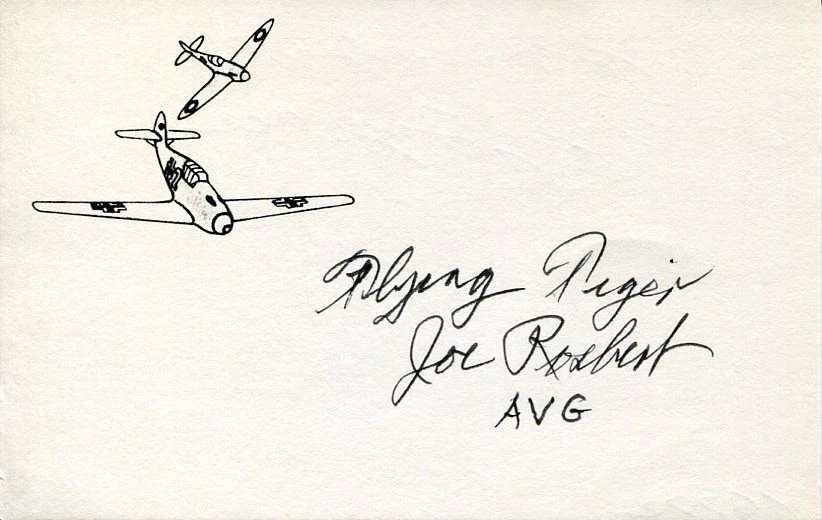 Flying Tiger
Joe Rosbert
AVG